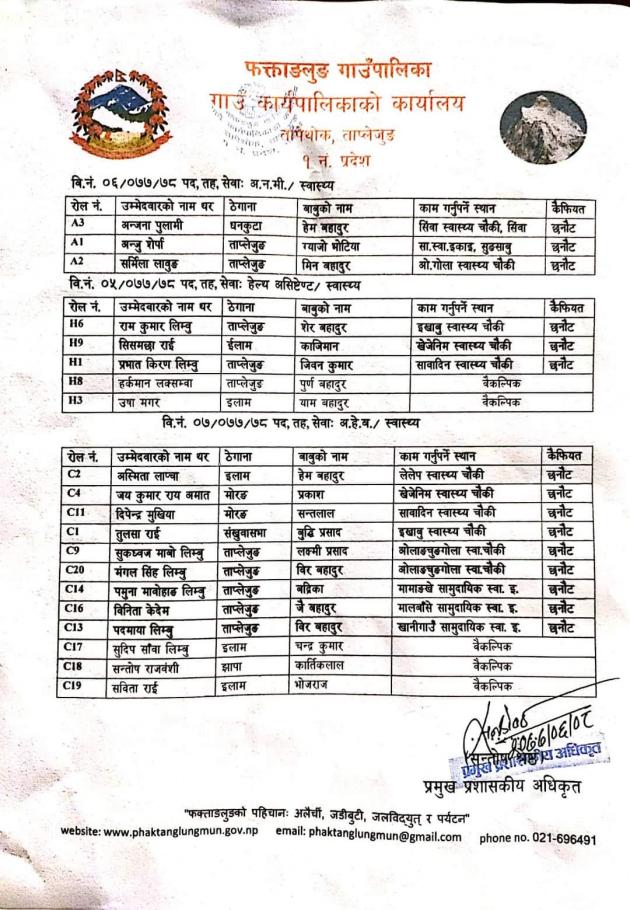 फक्ताङलुङ गाउँपालिका
गाउँ कार्यपालिकाको कार्यालय
तापेथोक, ताप्लेजुङ
१ नं. प्रदेश
बि.नं. ०६/०७७/७८ पद, तह, सेवाः अ.न.मी./ स्वास्थ्य
रोल नं. उम्मेदवारको नाम थर ठेगाना बाबुको नाम काम गर्नुपर्ने स्थान कैफियत
A3 अन्जना पुलामी धनकुटा हेम बहादुर सिंवा स्वास्थ्य चौकी, सिंवा छनौट
A1 अन्जु शेर्पा ताप्लेजुङ ग्याजो भोटिया सा.स्वा.इकाइ, सुङसाबु छनौट
A2 सर्मिला लावुङ ताप्लेजुङ मिन बहादुर ओ.गोला स्वास्थ्य चौकी छनौट
बि.नं. ०५/०७७/७८ पद, तह, सेवाः हेल्थ असिष्टेण्ट/ स्वास्थ्य
रोल नं. उम्मेदवारको नाम थर ठेगाना बाबुको नाम काम गर्नुपर्ने स्थान कैफियत
H6 राम कुमार लिम्बु ताप्लेजुङ शेर बहादुर इखाबु स्वास्थ्य चौकी छनौट
H9 सिसमछा राई ईलाम काजिमान खेजेनिम स्वास्थ्य चौकी छनौट
H1 प्रभात किरण लिम्बु ताप्लेजुङ जिवन कुमार सावादिन स्वास्थ्य चौकी छनौट
H8 हर्कमान लक्सम्वा ताप्लेजुङ पुर्ण बहादुर वैकल्पिक
H3 उषा मगर इलाम याम बहादुर वैकल्पिक
बि.नं. ०७/०७७/७८ पद, तह, सेवाः अ.हे.ब./ स्वास्थ्य
रोल नं. उम्मेदवारको नाम थर ठेगाना बाबुको नाम काम गर्नुपर्ने स्थान कैफियत
C2 अस्मिता लाप्चा इलाम हेम बहादुर लेलेप स्वास्थ्य चौकी छनौट
C4 जय कुमार राय अमात मोरङ प्रकाश खेजेनिम स्वास्थ्य चौकी छनौट
C11 दिपेन्द्र मुखिया मोरङ सन्तलाल सावादिन स्वास्थ्य चौकी छनौट
C1 तुलसा राई संखुवासभा बुद्धि प्रसाद इखाबु स्वास्थ्य चौकी छनौट
C9 सुकध्वज माबो लिम्बु ताप्लेजुङ लक्ष्मी प्रसाद ओलाङचुङगोला स्वा.चौकी छनौट
C20 मंगल सिंह लिम्बु ताप्लेजुङ बिर बहादुर ओलाङचुङगोला स्वा.चौकी छनौट
C14 पमुना मावोहाङ लिम्बु ताप्लेजुङ बद्रिका मामाङखे सामुदायिक स्वा. इ. छनौट
C16 बिनिता केदेम ताप्लेजुङ जै बहादुर मालबाँसे सामुदायिक स्वा. इ. छनौट
C13 पदमाया लिम्बु ताप्लेजुङ बिर बहादुर खानीगाउँ सामुदायिक स्वा. इ. छनौट
C17 सुदिप साँवा लिम्बु इलाम चन्द्र कुमार वैकल्पिक
C18 सन्तोष राजवंशी झापा कार्तिकलाल वैकल्पिक
C19 सविता राई इलाम भोजराज वैकल्पिक
सन्तोष
प्रमुख प्रशासकीय अधिकृत
प्रमुख प्रशासकीय अधिकृत
"फक्ताङलुङको पहिचानः अलैंची, जडीबुटी, जलविद्युत् र पर्यटन"
website: www.phaktanglungmun.gov.np email: phaktanglungmun@gmail.com phone no. 021-696491